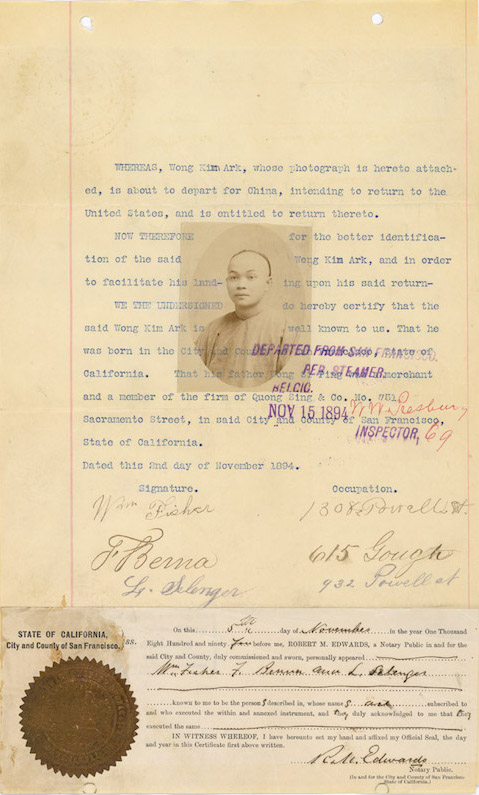 WHEREAS, Wong Kim Ark, whose photograph is hereto attach-
ed, is about to depart for China, intending to return to the
United States, and is entitled to return thereto.
NOW THEREFORE for the better identifica-
tion of the said Wong Kim Ark, and in order
to facilitate his land- ing upon his said return-
WE THE UNDERSIGNED do hereby certify that the
said Wong Kim Ark is well known to us. That he
was born in the City and State of
California. That his father merchant
and a member of the firm of Quong Sing & Co. No. 751
Sacramento Street, in said City and County of San Francisco,
State of California.
DEPARTED FROM SAN FRANCISCO.
PER STEAMER.
BELGIC.
NOV 15 1894
INSPECTOR, 69
Dated this 2nd day of November 1894.
Signature. Occupation.
Wm Fisher 1308 Powell St.
F Berna 615 Gough
L. Selenger 932 Powell st
STATE OF CALIFORNIA,
City and County of San Francisco, ss.
On this 5th day of November in the year One Thousand
Eight Hundred and ninety four before me, ROBERT M. EDWARDS, a Notary Public in and for the
said City and County, duly commissioned and sworn, personally appeared
Wm Fisher F. Berna and L. Selenger
known to me to be the person s described in, whose name s are subscribed to
and who executed the within and annexed instrument, and they duly acknowledged to me that they
executed the same
IN WITNESS WHEREOF, I have hereunto set my hand and affixed my Official Seal, the day
and year in this Certificate first above written.
R. M. Edwards
Notary Public.
(In and for the City and County of San Francisco
State of California.)